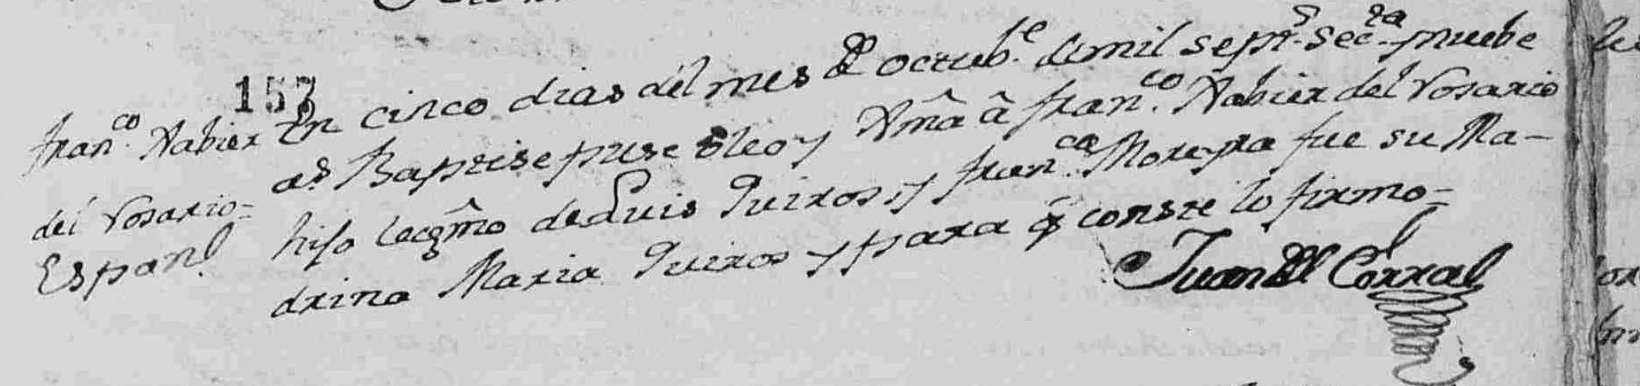 157
Franco. Xabier
del Rosario=
Españl.
En cinco dias del mes de octube. de mil septs. Secta. y nuebe
as Baptise puse oleo y Xma â Franco. Xabier del Rosario
hijo lecgmo de Luis Quiros y Franca. Moreyra fue su Ma-
drina Maria Quiros y para q̃ conste lo firmo=
Juan del Corral